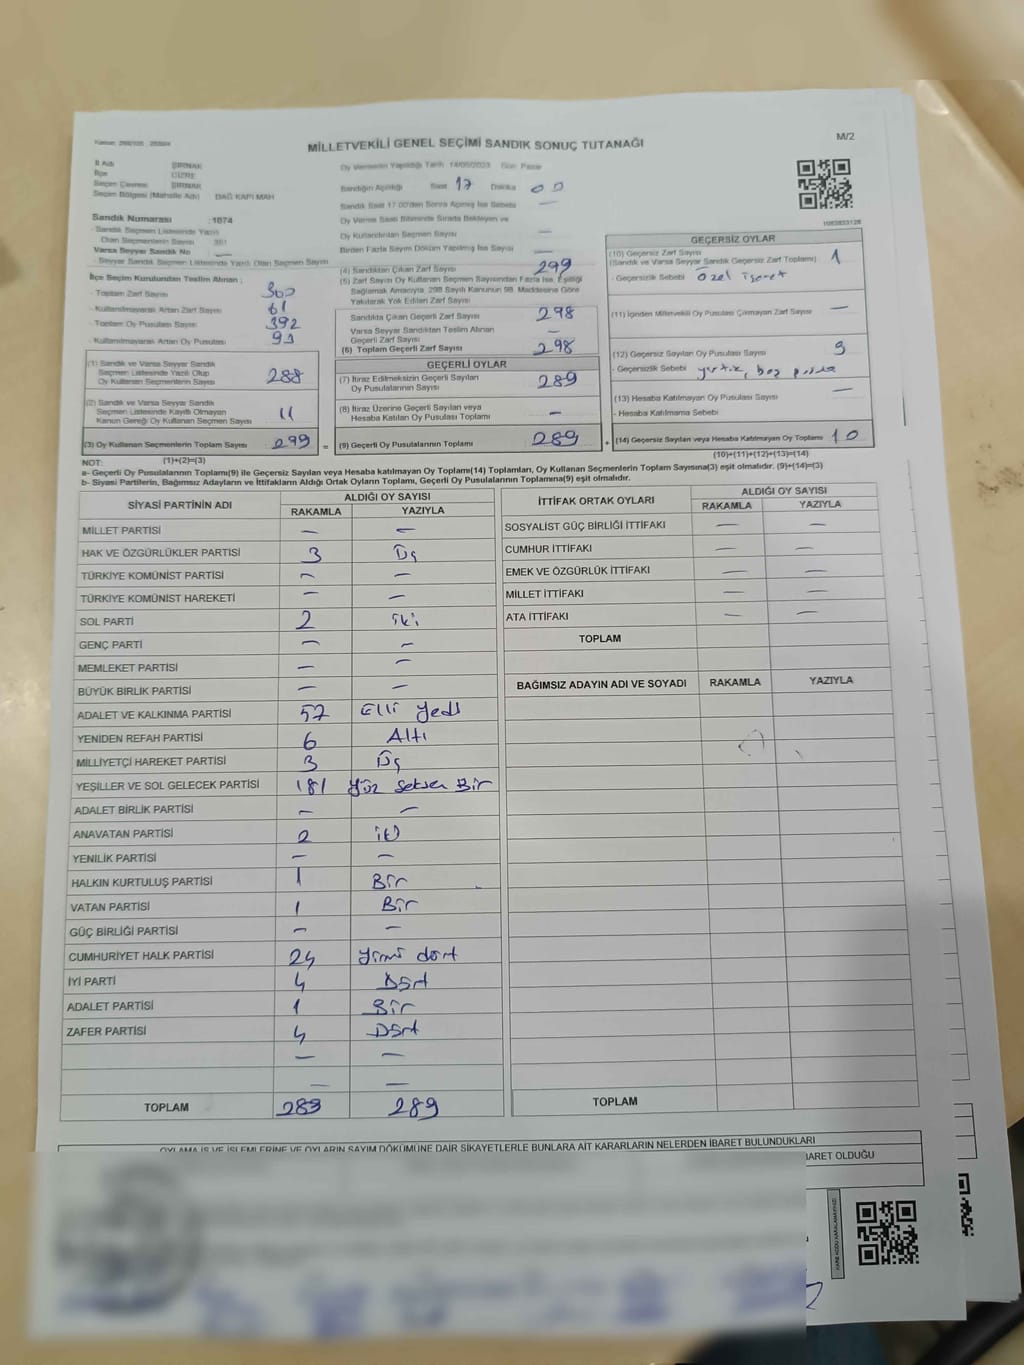 MİLLETVEKİLİ GENEL SEÇİMİ SANDIK SONUÇ TUTANAĞI
M/2
İl Adı ŞIRNAK
İlçe CİZRE
Seçim Çevresi ŞIRNAK
Seçim Bölgesi (Mahalle Adı) DAĞ KAPI MAH
Sandık Numarası :1074
- Sandık Seçmen Listesinde Yazılı
Olan Seçmenlerin Sayısı 351
Varsa Seyyar Sandık No —
- Seyyar Sandık Seçmen Listesinde Yazılı Olan Seçmen Sayısı
İlçe Seçim Kurulundan Teslim Alınan ;
- Toplam Zarf Sayısı 360
- Kullanılmayarak Artan Zarf Sayısı 61
- Toplam Oy Pusulası Sayısı 392
- Kullanılmayarak Artan Oy Pusulası 93
(1) Sandık ve Varsa Seyyar Sandık
Seçmen Listesinde Yazılı Olup
Oy Kullanan Seçmenlerin Sayısı 288
(2) Sandık ve Varsa Seyyar Sandık
Seçmen Listesinde Kayıtlı Olmayan
Kanun Gereği Oy Kullanan Seçmen Sayısı 11
(3) Oy Kullanan Seçmenlerin Toplam Sayısı 299 =
(1)+(2)=(3)
Oy Vermenin Yapıldığı Tarih 14/05/2023 Gün Pazar
Sandığın Açıldığı Saat 17 Dakika 00
Sandık Saat 17.00'den Sonra Açılmış İse Sebebi —
Oy Verme Saati Bitiminde Sırada Bekleyen ve
Oy Kullandırılan Seçmen Sayısı —
Birden Fazla Sayım Döküm Yapılmış İse Sayısı —
(4) Sandıktan Çıkan Zarf Sayısı 299
(5) Zarf Sayısı Oy Kullanan Seçmen Sayısından Fazla İse, Eşitliği
Sağlamak Amacıyla, 298 Sayılı Kanunun 98. Maddesine Göre
Yakılarak Yok Edilen Zarf Sayısı
Sandıkta Çıkan Geçerli Zarf Sayısı 298
Varsa Seyyar Sandıktan Teslim Alınan
Geçerli Zarf Sayısı —
(6) Toplam Geçerli Zarf Sayısı 298
GEÇERLİ OYLAR
(7) İtiraz Edilmeksizin Geçerli Sayılan
Oy Pusulasının Sayısı 289
(8) İtiraz Üzerine Geçerli Sayılan veya
Hesaba Katılan Oy Pusulası Toplamı —
(9) Geçerli Oy Pusulalarının Toplamı 289 +
GEÇERSİZ OYLAR
(10) Geçersiz Zarf Sayısı
(Sandık ve Varsa Seyyar Sandık Geçersiz Zarf Toplamı) 1
- Geçersizlik Sebebi Özel işaret
(11) İçinden Milletvekili Oy Pusulası Çıkmayan Zarf Sayısı —
(12) Geçersiz Sayılan Oy Pusulası Sayısı 9
- Geçersizlik Sebebi yırtık, boş pusula
(13) Hesaba Katılmayan Oy Pusulası Sayısı —
- Hesaba Katılmama Sebebi
(14) Geçersiz Sayılan veya Hesaba Katılmayan Oy Toplamı 10
(10)+(11)+(12)+(13)=(14)
NOT:
a- Geçerli Oy Pusulalarının Toplamı(9) ile Geçersiz Sayılan veya Hesaba katılmayan Oy Toplamı(14) Toplamları, Oy Kullanan Seçmenlerin Toplam Sayısına(3) eşit olmalıdır. (9)+(14)=(3)
b- Siyasi Partilerin, Bağımsız Adayların ve İttifakların Aldığı Ortak Oyların Toplamı, Geçerli Oy Pusulalarının Toplamına(9) eşit olmalıdır.
SİYASİ PARTİNİN ADI ALDIĞI OY SAYISI
RAKAMLA YAZIYLA
MİLLET PARTİSİ — —
HAK VE ÖZGÜRLÜKLER PARTİSİ 3 Üç
TÜRKİYE KOMÜNİST PARTİSİ — —
TÜRKİYE KOMÜNİST HAREKETİ — —
SOL PARTİ 2 iki
GENÇ PARTİ — —
MEMLEKET PARTİSİ — —
BÜYÜK BİRLİK PARTİSİ — —
ADALET VE KALKINMA PARTİSİ 57 Elli Yedi
YENİDEN REFAH PARTİSİ 6 Altı
MİLLİYETÇİ HAREKET PARTİSİ 3 Üç
YEŞİLLER VE SOL GELECEK PARTİSİ 181 Yüz Seksen Bir
ADALET BİRLİK PARTİSİ — —
ANAVATAN PARTİSİ 2 iki
YENİLİK PARTİSİ — —
HALKIN KURTULUŞ PARTİSİ 1 Bir
VATAN PARTİSİ 1 Bir
GÜÇ BİRLİĞİ PARTİSİ — —
CUMHURİYET HALK PARTİSİ 24 Yirmi dört
İYİ PARTİ 4 Dört
ADALET PARTİSİ 1 Bir
ZAFER PARTİSİ 4 Dört
— —
— —
TOPLAM 289 289
İTTİFAK ORTAK OYLARI ALDIĞI OY SAYISI
RAKAMLA YAZIYLA
SOSYALİST GÜÇ BİRLİĞİ İTTİFAKI — —
CUMHUR İTTİFAKI — —
EMEK VE ÖZGÜRLÜK İTTİFAKI — —
MİLLET İTTİFAKI — —
ATA İTTİFAKI — —
TOPLAM
BAĞIMSIZ ADAYIN ADI VE SOYADI RAKAMLA YAZIYLA
TOPLAM
OYLAMA İŞ VE İŞLEMLERİNE VE OYLARIN SAYIM DÖKÜMÜNE DAİR ŞİKAYETLERLE BUNLARA AİT KARARLARIN NELERDEN İBARET BULUNDUKLARI
BARET OLDUĞU